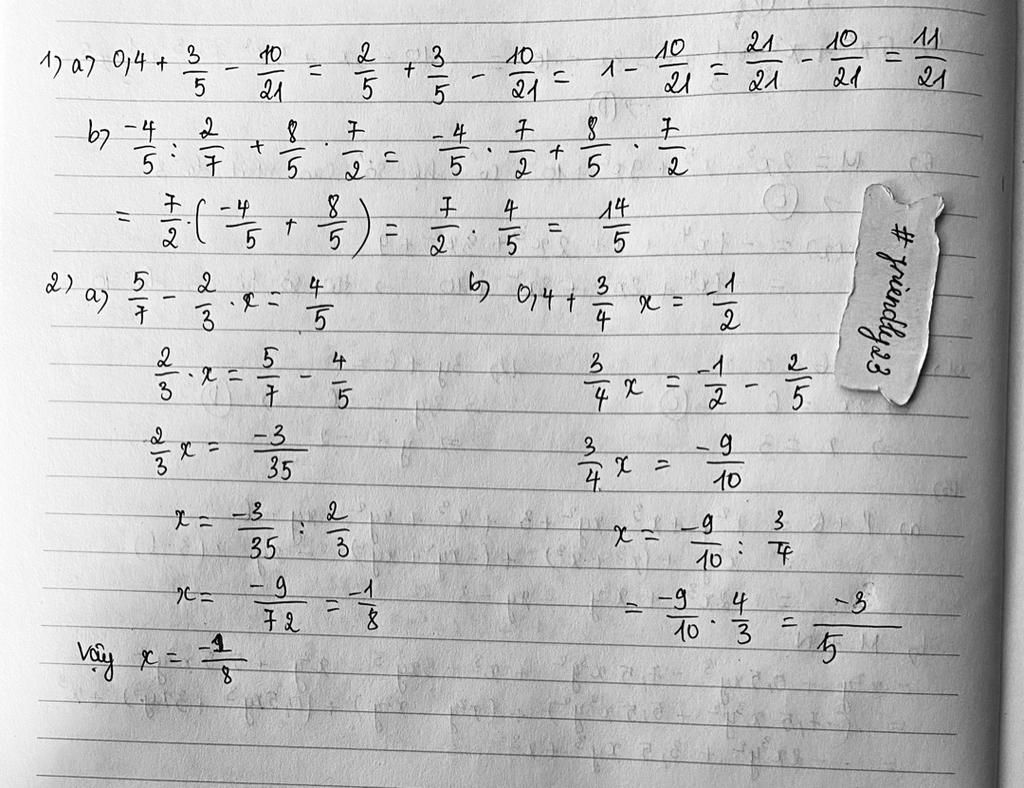 1) a) 0,4 + 3/5 - 10/21 = 2/5 + 3/5 - 10/21 = 1 - 10/21 = 21/21 - 10/21 = 11/21
b) -4/5 : 2/7 + 8/5 . 7/2 = -4/5 . 7/2 + 8/5 . 7/2
= 7/2 . (-4/5 + 8/5) = 7/2 . 4/5 = 14/5
2) a) 5/7 - 2/3 . x = 4/5
2/3 . x = 5/7 - 4/5
2/3 x = -3/35
x = -3/35 : 2/3
x = -9/72 = -1/8
Vậy x = -1/8
b) 0,4 + 3/4 x = -1/2
3/4 x = -1/2 - 2/5
3/4 x = -9/10
x = -9/10 : 3/4
= -9/10 . 4/3 = -3/5
#friendly23